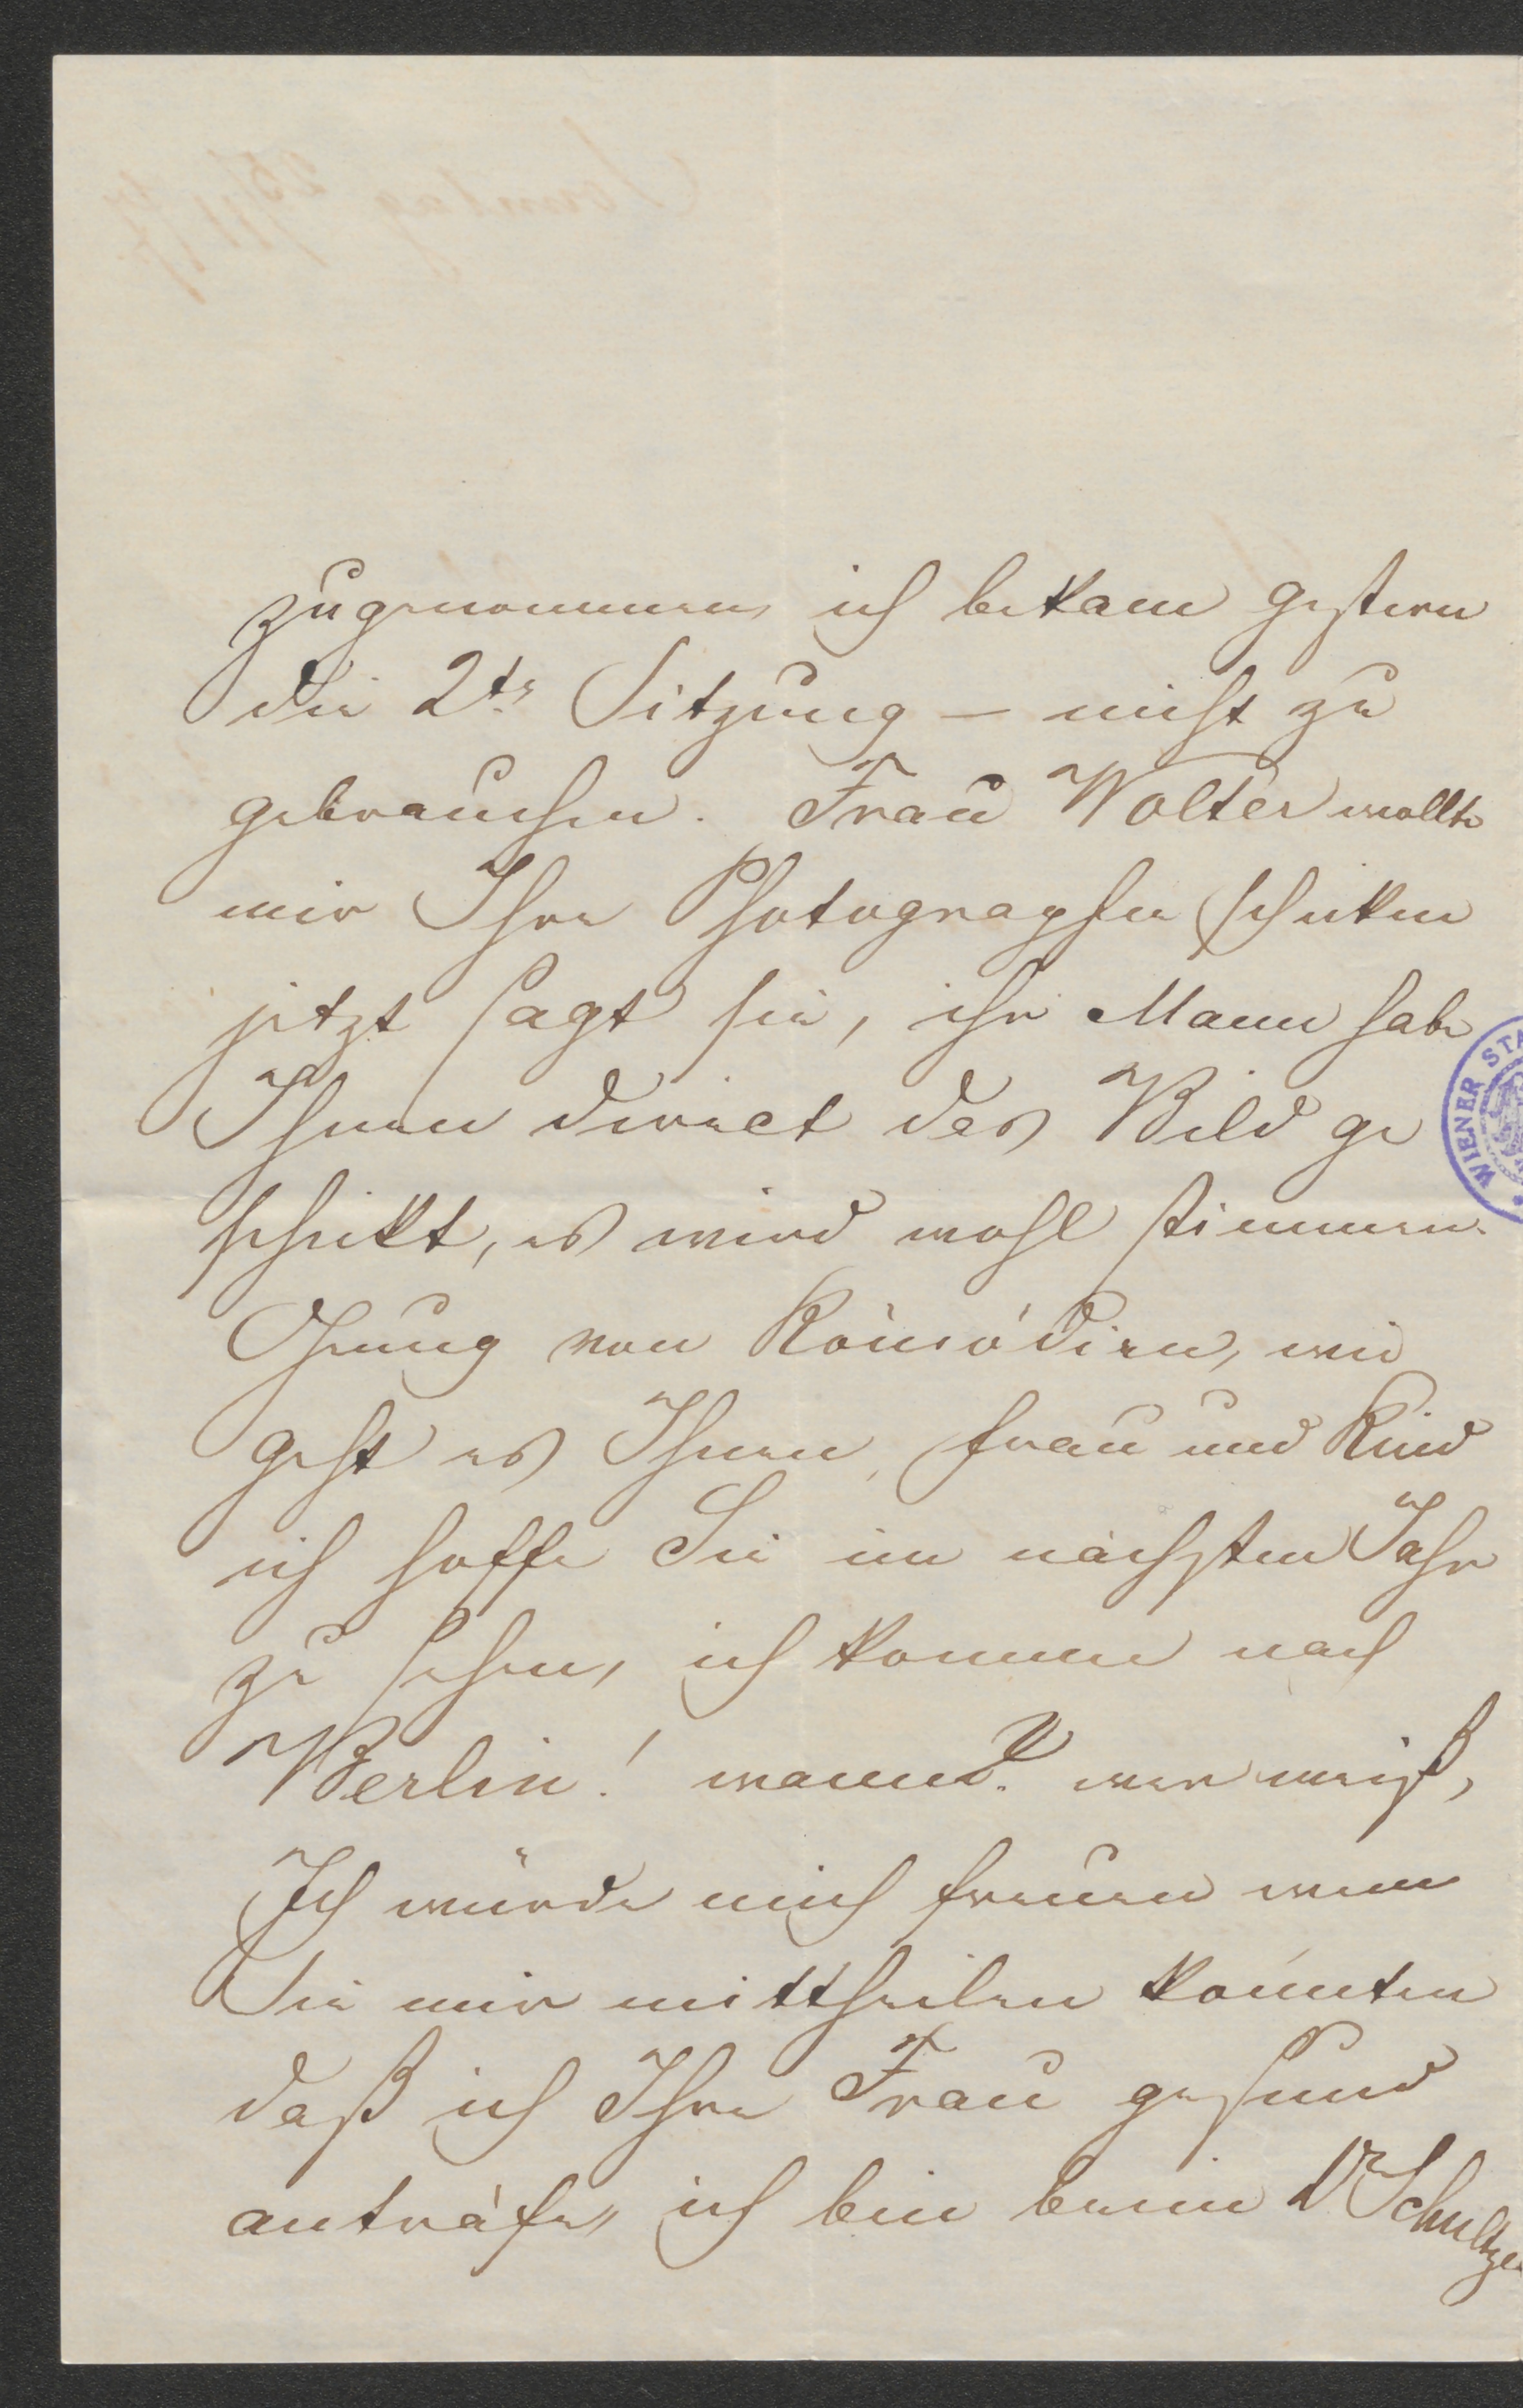 zugenommen, ich bekam gestern
die 2te Sitzung – nicht zu
gebrauchen. Frau Wolter wollte
mir Ihre Photographie schicken
jetzt sagt sie, ihr Mann habe
Ihnen direct das Bild ge
schickt, es wird wohl stimmen.
Genug von Komödien, wie
geht es Ihnen, Frau und Kind
ich hoffe Sie im nächsten Jahr
zu sehen, ich komme nach
Berlin! wann? wer weiß,
Ich würde mich freuen wenn
Sie mir mittheilen könnten
daß ich Ihre Frau gesund
anträfe, ich bin beim Dr Schultze
WIENER STA